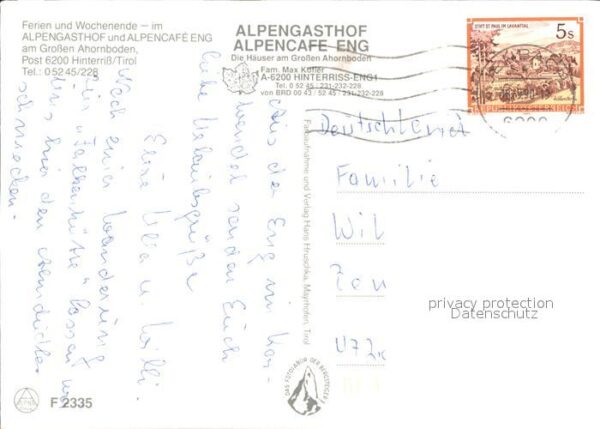 Ferien und Wochenende – im
ALPENGASTHOF und ALPENCAFÉ ENG
am Großen Ahornboden,
Post 6200 Hinterriß/Tirol
Tel.: 0 52 45/228
ALPENGASTHOF
ALPENCAFE ENG
Die Häuser am Großen Ahornboden
Fam. Max Kofler
A-6200 HINTERRISS-ENG1
Tel. 0 52 45 - 231-232-228
von BRD 00 43 / 52 45 - 231-232-228
Aus der Eng im Kar-
wendel senden Euch
liebe Urlaubsgrüße
Eure Ulla u. Willi.
Nach einer Wanderung
zur "Falkenhütte" lassen wir
uns hier den
schmecken.
Farbaufnahme und Verlag Hans Hruschka, Mayrhofen, Tirol
DAS FOTOLABOR DER BERGSTEIGER
F 2335
STIFT ST. PAUL IM LAVANTTAL
5 S
REPUBLIK ÖSTERREICH
6200
Deutschland
Familie
Wil
Zen
privacy protection
Datenschutz